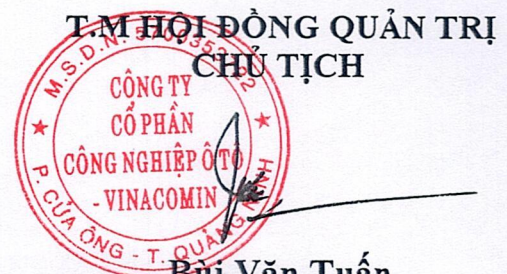 T.M HỘI ĐỒNG QUẢN TRỊ
CHỦ TỊCH
M.S.D.N:
CÔNG TY
CỔ PHẦN
CÔNG NGHIỆP Ô TÔ
- VINACOMIN
P. CỬA ÔNG - T. QUẢNG NINH
Bùi Văn Tuấn